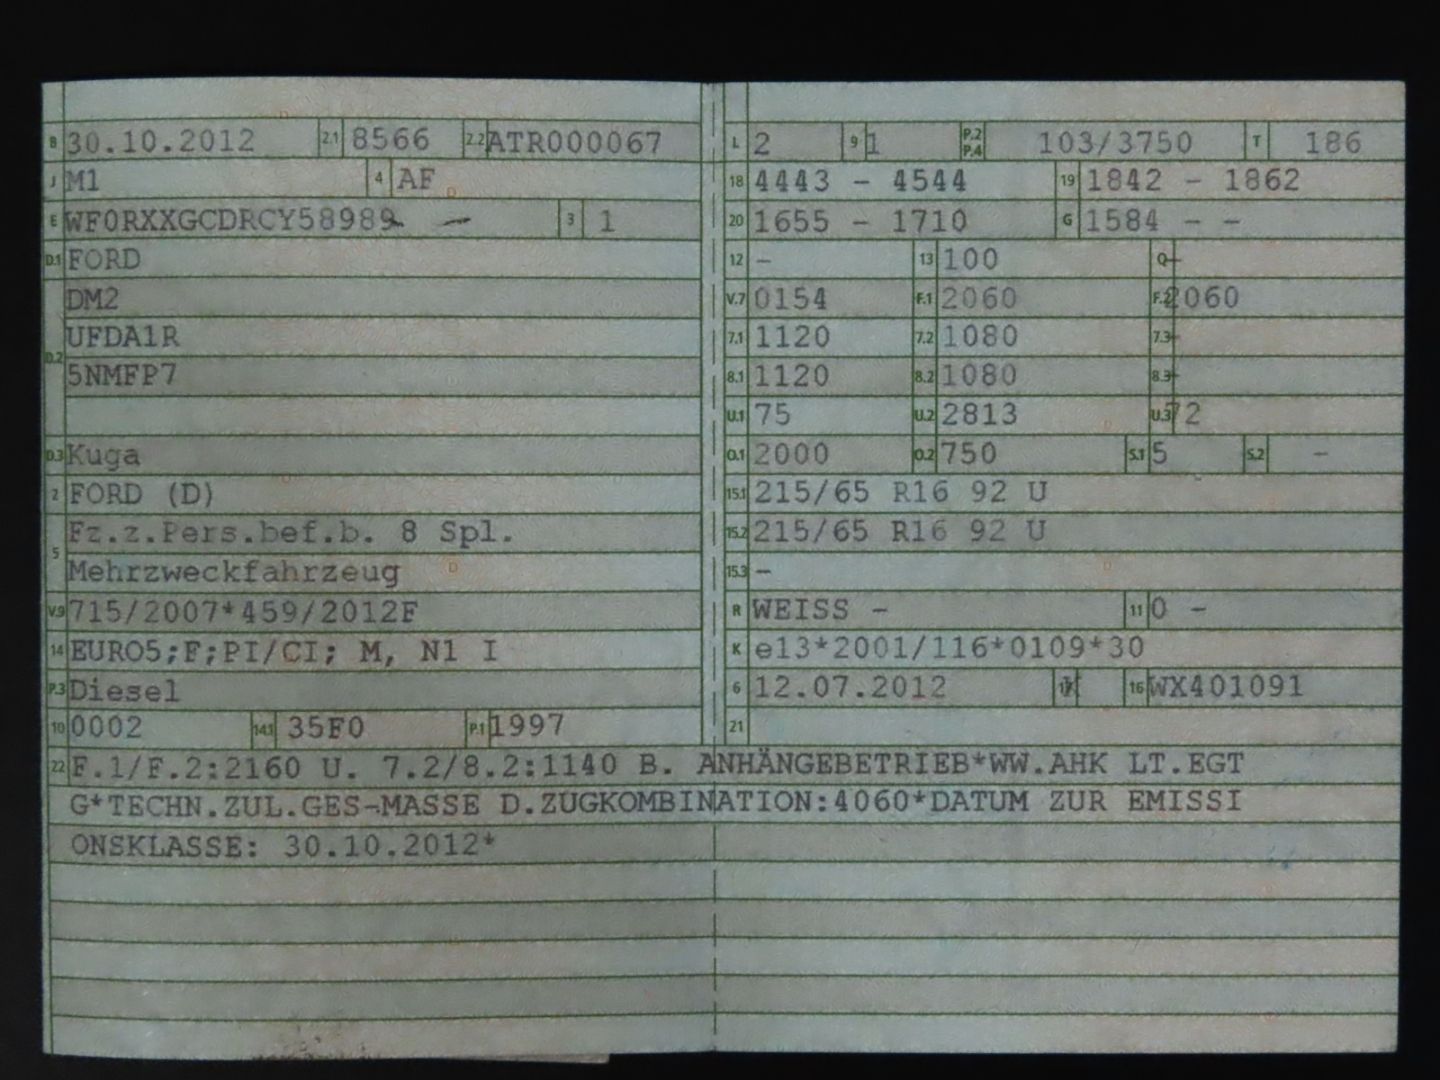 B 30.10.2012 2.1 8566 2.2 ATR000067
J M1 4 AF
E WF0RXXGCDRCY58989 - 3 1
D.1 FORD
DM2
D.2 UFDA1R
5NMFP7
D.3 Kuga
2 FORD (D)
5 Fz.z.Pers.bef.b. 8 Spl.
Mehrzweckfahrzeug
V.9 715/2007*459/2012F
14 EURO5;F;PI/CI; M, N1 I
P.3 Diesel
10 0002 14.1 35F0 P.1 1997
L 2 9 1 P.2 P.4 103/3750 T 186
18 4443 - 4544 19 1842 - 1862
20 1655 - 1710 G 1584 - -
12 - 13 100 Q -
V.7 0154 F.1 2060 F.2 2060
7.1 1120 7.2 1080 7.3 -
8.1 1120 8.2 1080 8.3 -
U.1 75 U.2 2813 U.3 72
O.1 2000 O.2 750 S.1 5 S.2 -
15.1 215/65 R16 92 U
15.2 215/65 R16 92 U
15.3 -
R WEISS - 11 0 -
K e13*2001/116*0109*30
6 12.07.2012 17 16 WX401091
21
22 F.1/F.2:2160 U. 7.2/8.2:1140 B. ANHÄNGEBETRIEB*WW.AHK LT.EGT
G*TECHN.ZUL.GES-MASSE D.ZUGKOMBINATION:4060*DATUM ZUR EMISSI
ONSKLASSE: 30.10.2012*